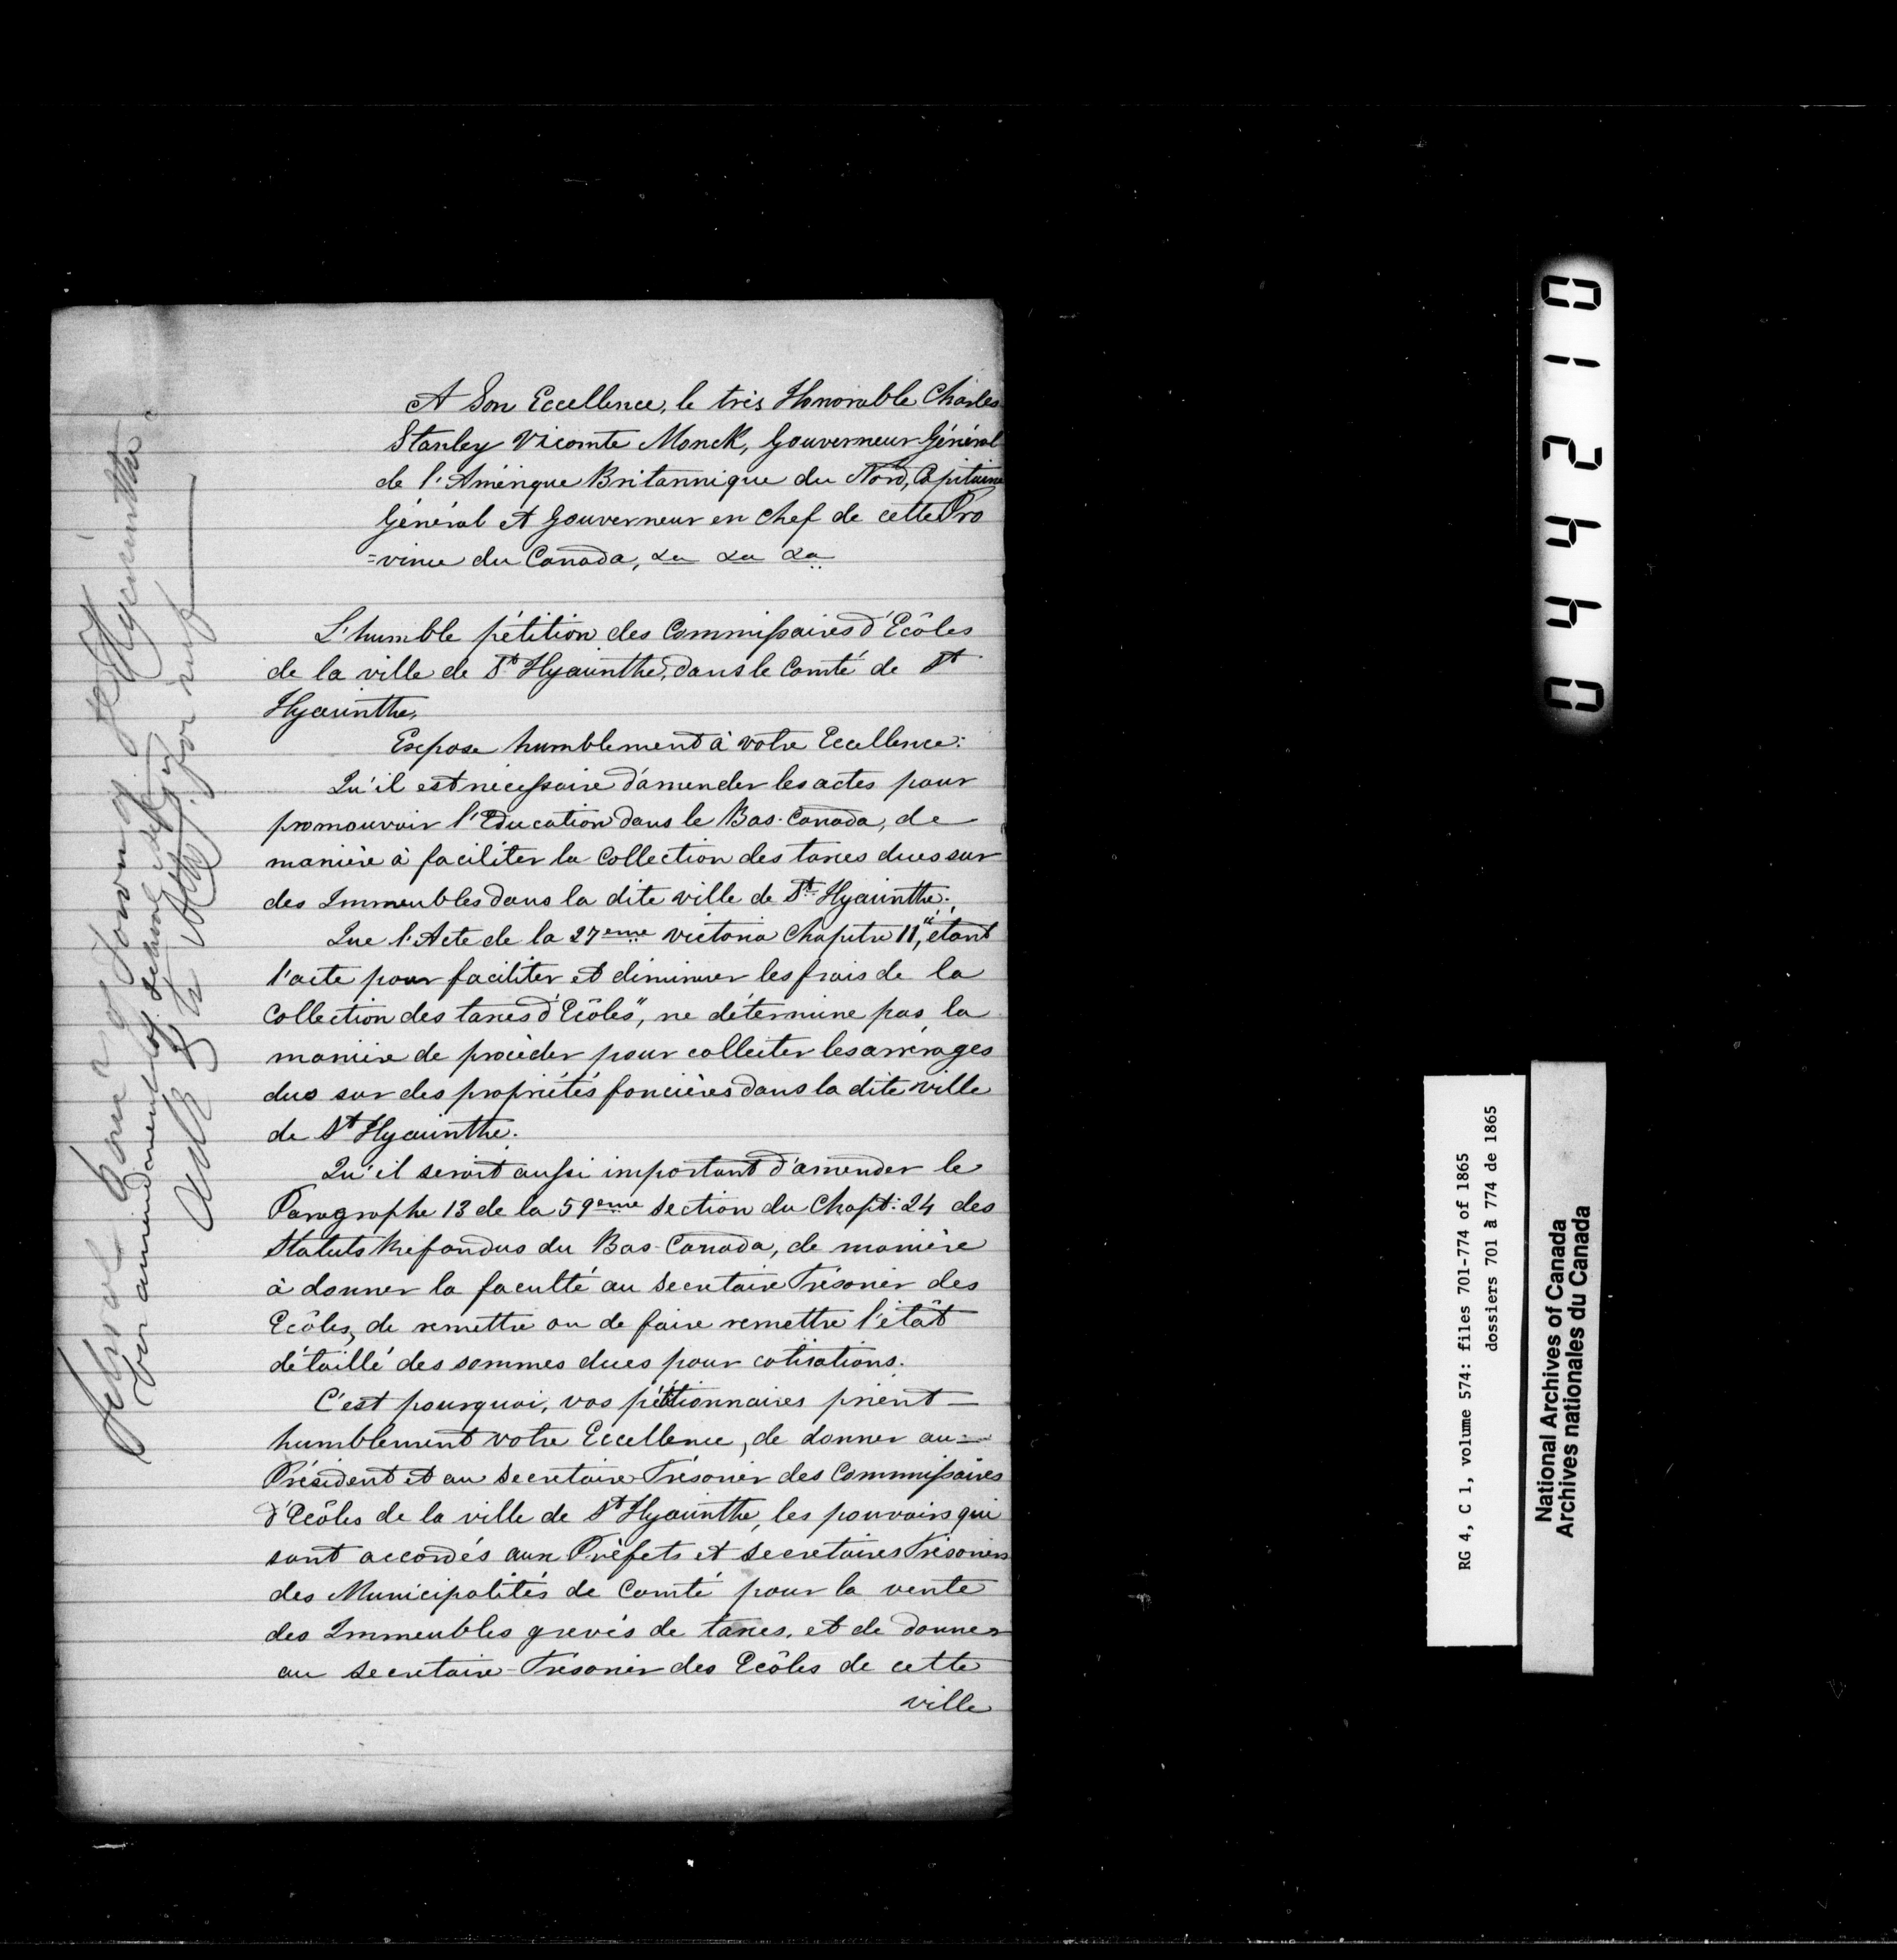 A Son Excellence, le très Honorable Charles
Stanley Vicomte Monck, Gouverneur-Général
de l'Amérique Britannique du Nord, Capitaine
Général et Gouverneur en chef de cette Pro
=vince du Canada, &a &a &a
L'humble pétition des Commissaires d'Ecôles
de la ville de St Hyacinthe, dans le Comté de St
Hyacinthe,
Expose humblement à votre Excellence:
Qu'il est necessaire d'amender les actes pour
promouvoir l'Education dans le Bas-Canada, de
manière à faciliter la Collection des taxes dues sur
des Immeubles dans la dite ville de St Hyacinthe;
Que l'Acte de la 27eme Victoria Chapitre 11, "étant
l'acte pour faciliter et diminuer les frais de la
Collection des taxes d'Ecôles", ne détermine pas la
manière de procéder pour collecter les arrérages
dus sur des propriétés foncières dans la dite ville
de St Hyacinthe.
Qu'il serait aussi important d'amender le
Paragraphe 13 de la 59eme Section du Chapt: 24 des
Statuts Refondus du Bas-Canada, de manière
à donner la faculté au Secretaire Trésorier des
Ecôles, de remettre ou de faire remettre l'étât
détaillé des sommes dues pour cotisations.
C'est pourquoi, vos pétitionnaires prient
humblement votre Excellence, de donner au
Président et au Secretaire-Trésorier des Commissaires
d'Ecôles de la ville de St Hyacinthe, les pouvoirs qui
sont accordés aux Préfets et Secretaires Trésoriers
des Municipalités de Comté pour la vente
des Immeubles grevés de taxes, et de donner
au Secretaire-Trésorier des Ecôles de cette
ville
School Comrs of Town of St Hyacinthe
for amendment of School
01 2 4 4 0
RG 4, C 1, volume 574: files 701-774 of 1865
dossiers 701 à 774 de 1865
National Archives of Canada
Archives nationales du Canada